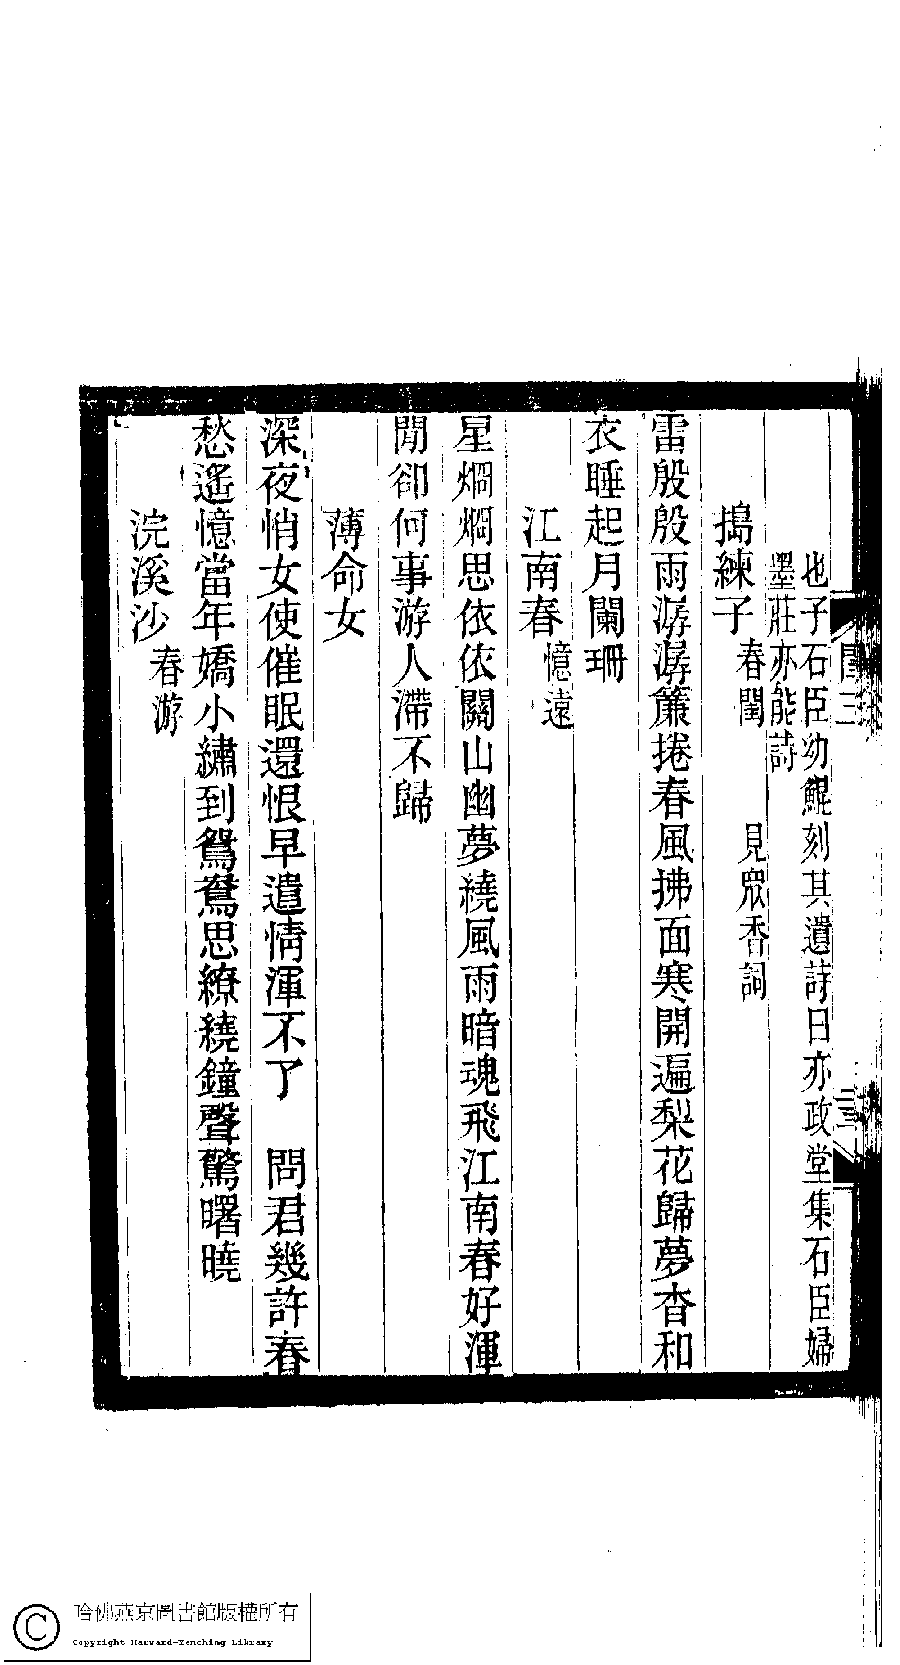 也子石臣幼鯤刻其遺詩曰亦政堂集石臣婦
墨莊亦能詩
搗練子春閨 見眾香詞
雷殷殷雨潺潺簾捲春風拂面寒開遍梨花歸夢杳和
衣睡起月闌珊
江南春憶遠
星烱烱思依依關山幽夢繞風雨暗魂飛江南春好渾
閒卻何事游人滯不歸
薄命女
深夜悄女使催眠還恨早遣情渾不了 問君幾許春
愁遙憶當年嬌小繡到鴛鴦思繚繞鐘聲驚曙曉
浣溪沙春游
哈佛燕京圖書館版權所有
Copyright Harvard-Yenching Library